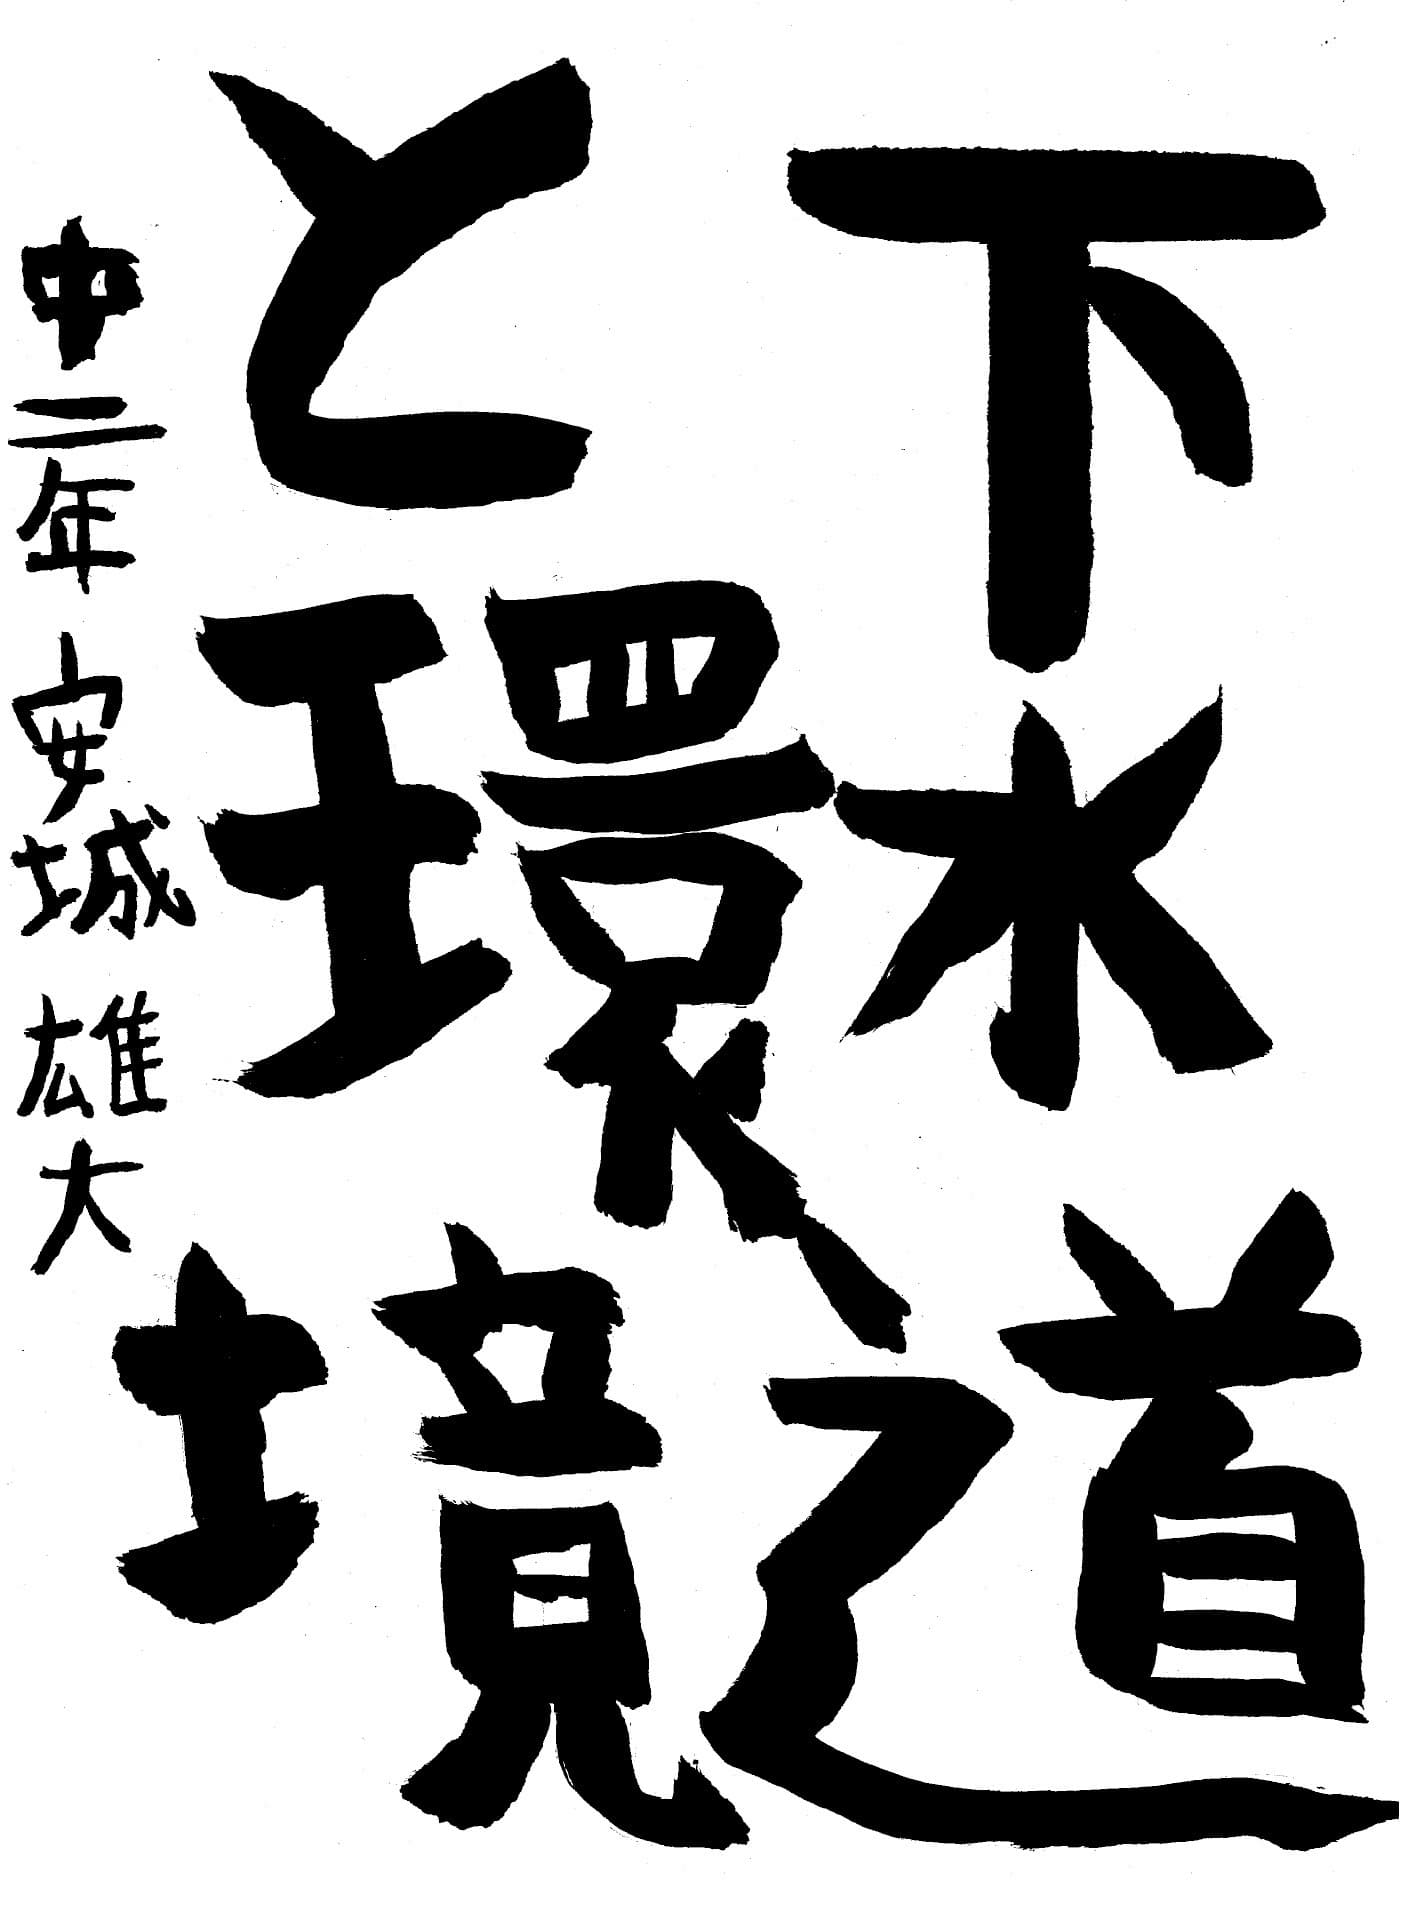 下水道
と環境
中二年 安城 雄大